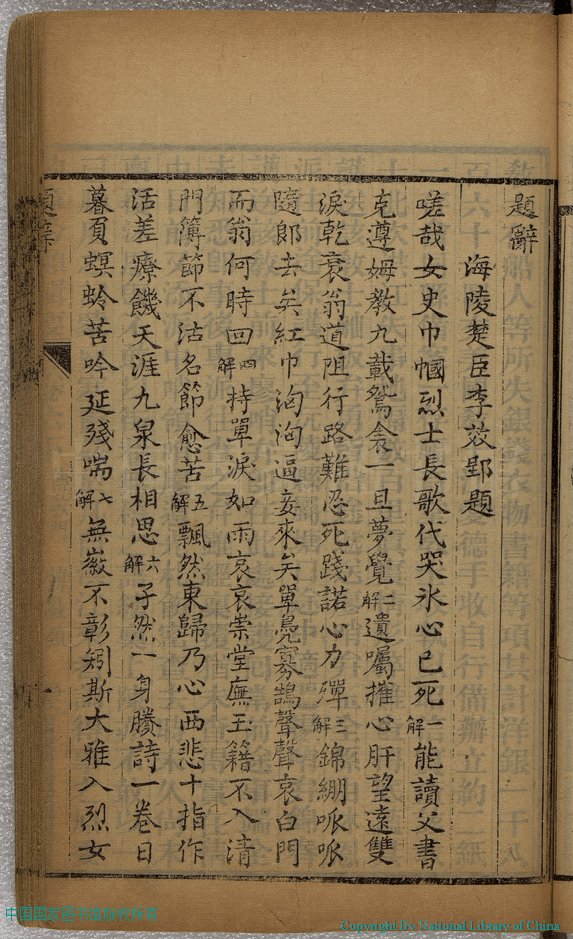 題辭
海陵楚臣李苾郢題
嗟哉女史巾幗烈士長歌代哭氷心已死一解能讀父書
克遵姆教九載鴛衾一旦夢覺二解遺囑摧心肝望遠雙
淚乾衰翁道阻行路難忍死踐諾心力殫三解錦綳哌哌
隨郞去矣紅巾洶洶逼妾來矣單鳧寡鵠聲聲哀白門
而翁何時回四解持單淚如雨哀哀崇堂廡玉籍不入清
門簿節不沽名節愈苦五解飄然東歸乃心西悲十指作
活差療饑天涯九泉長相思六解孑然一身賸詩一巻日
暮頁螟蛉苦吟延殘喘七解無徽不彰矧斯大雅入烈女
題辭
Copyright By National Library of China